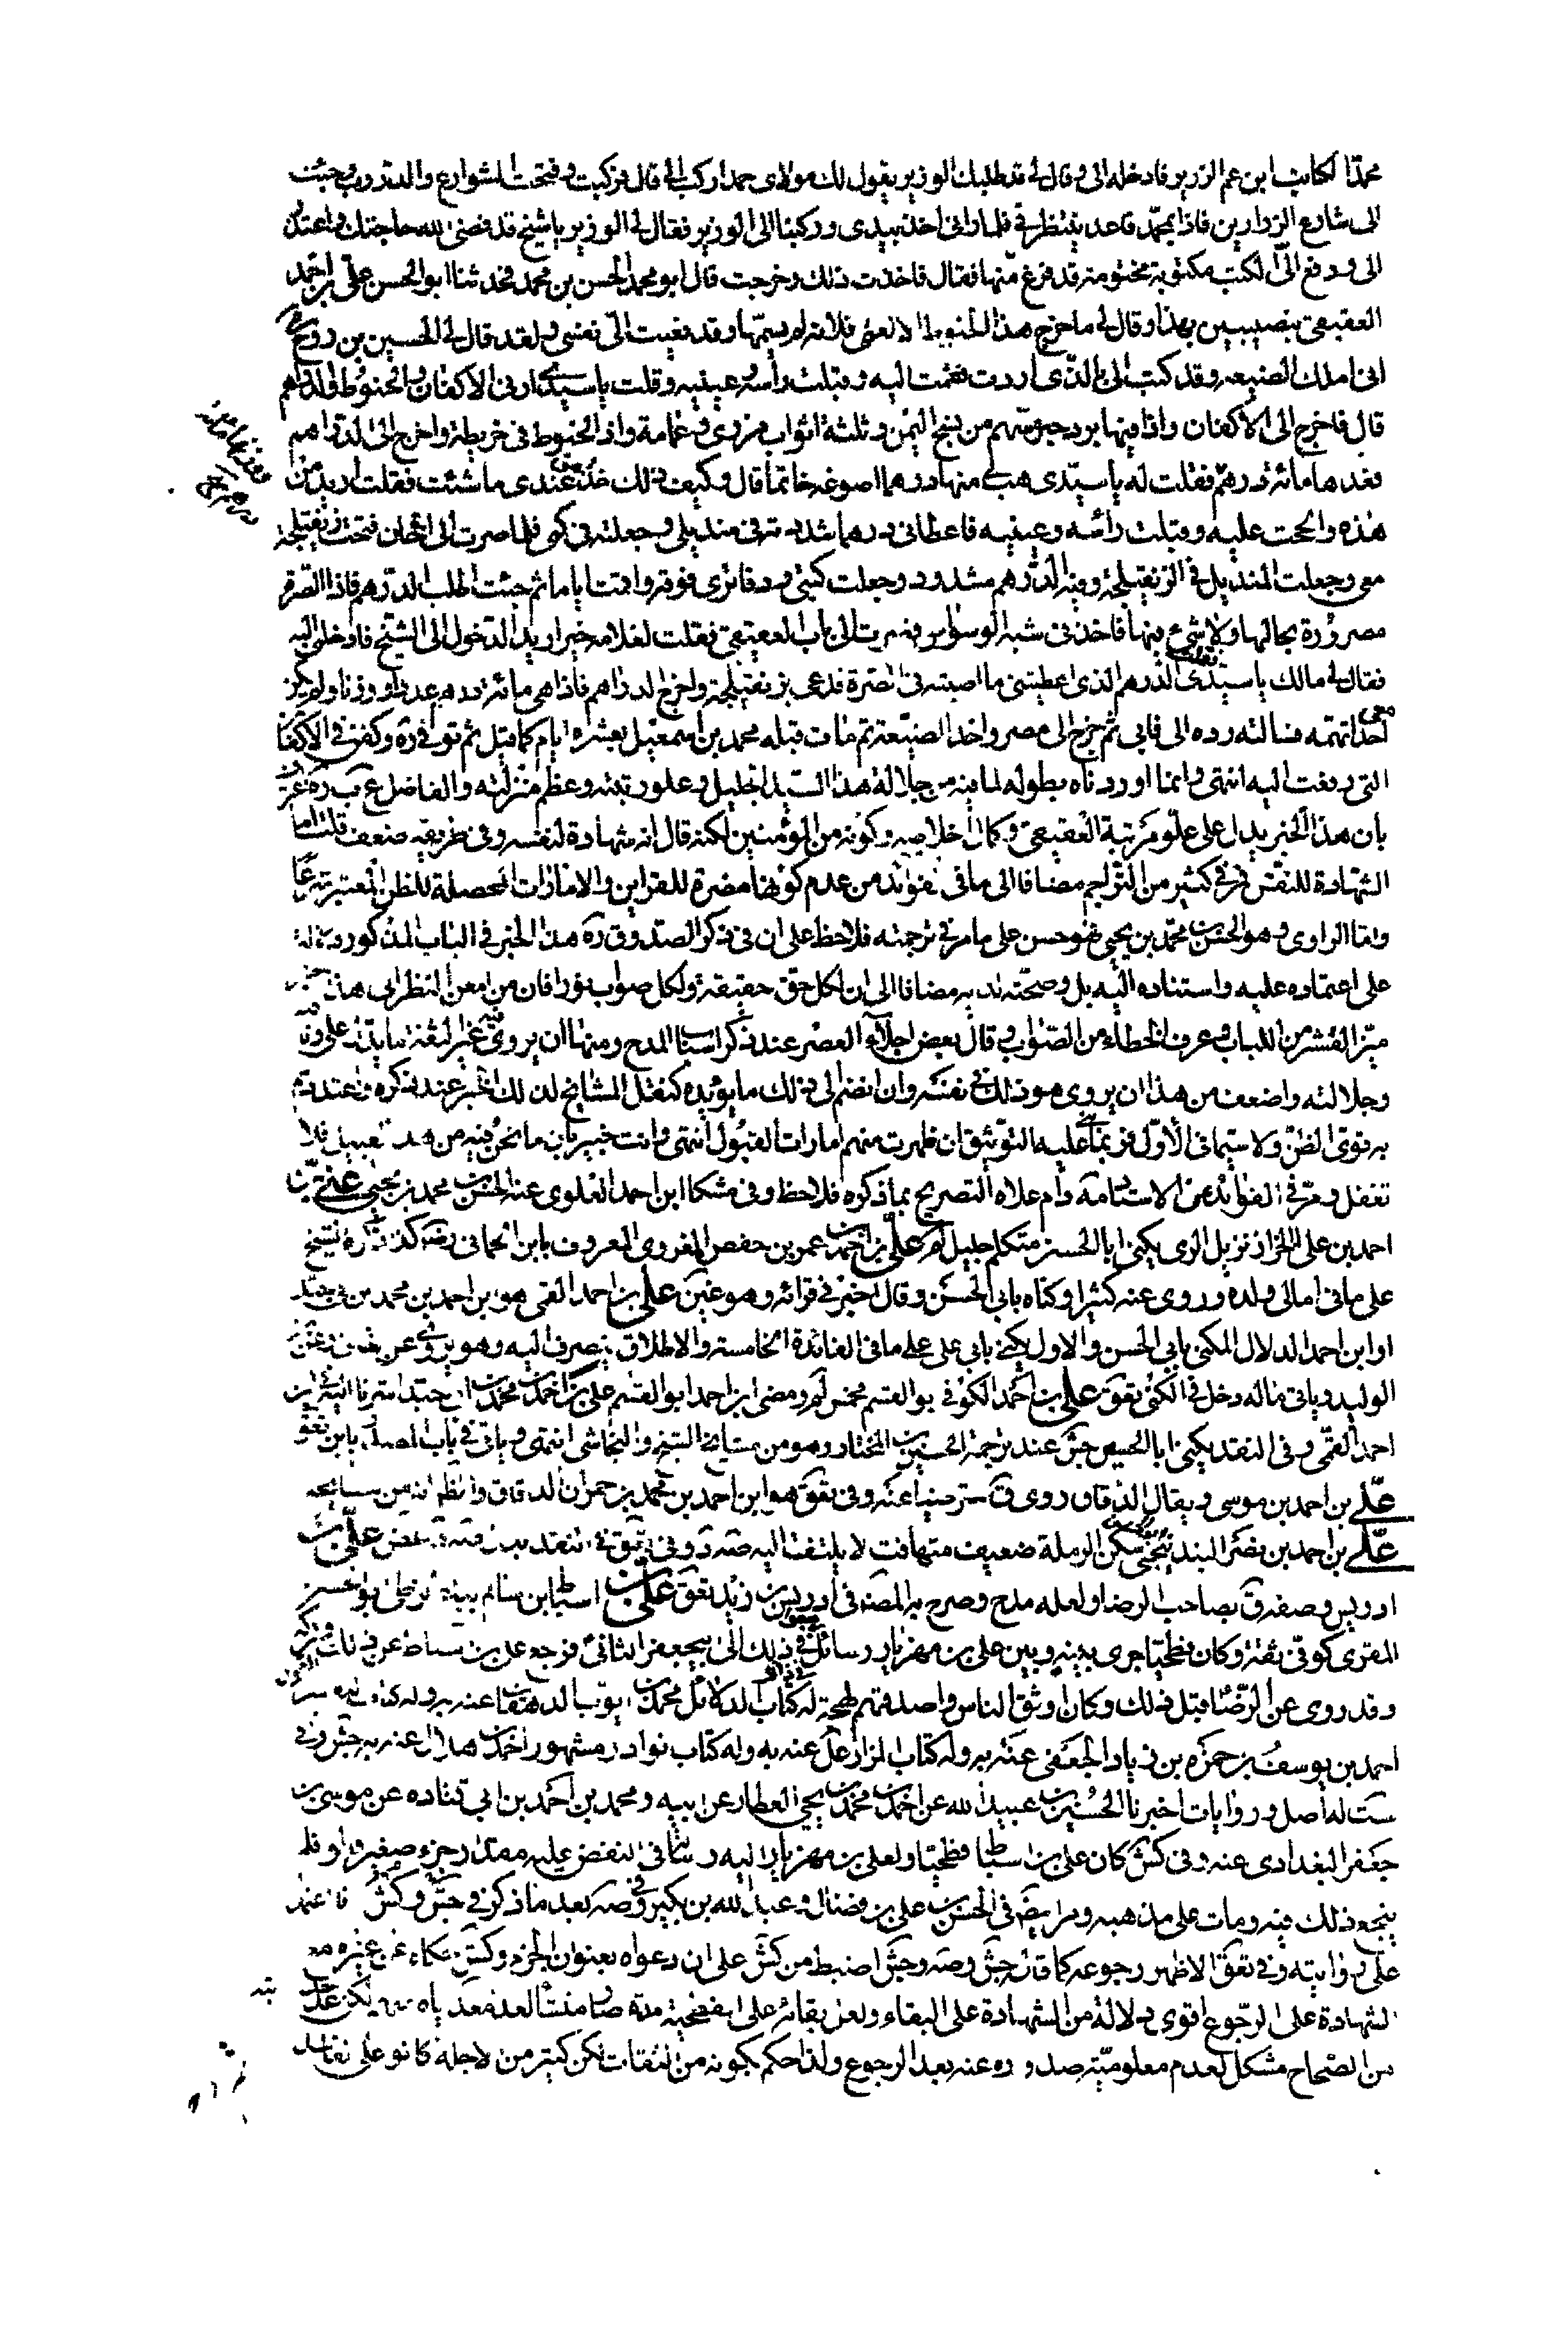 محمد الكاتب ابن عم الوزير فادخله الي وقال لي قد طلبك الوزير يقول لك مولاي حمد اركب الي قال فركبت وفتحت الشوارع والدروب وجئت
الى شارع الوزارين فاذا بمحمد قاعد ينتظرني فلما راني اخذ بيدي وركبنا الى الوزير فقال لي الوزير يا شيخ قد قضى الله حاجتك واعتذر
الي ودفع الي الكتب مكتوبة مختومة قد فرغ منها فقال فاخذت ذلك وخرجت قال ابو محمد الحسن بن محمد فحدثنا ابو الحسن علي بن احمد
العقيقي بنصيبين بهذا وقال لي ما خرج هذا الحنوط الا لعمتي فلانه لم يسمها وقد نعيت الي نفسي ولقد قال لي الحسين بن روح
اني املك الضيعه وقد كتب الي بالذي اردت فقمت اليه وقبلت راسه وعينيه وقلت يا سيدي ارني الاكفان والحنوط والدراهم
قال فاخرج الي الاكفان واذا فيها برد حبر مسهم من نسج اليمن وثلثة اثواب مروي وعمامة واذا الحنوط في خريطة واخرج الي الدراهم
فعدها مائة درهم فقلت له يا سيدي هب لي منها درهما اصوغه خاتما قال وكيف ذلك خذ من عندي ما شئت فقلت اريد من
هذه والححت عليه وقبلت رأسه وعينيه فاعطاني درهما شددته في منديلي وجعلته في كمي فلما صرت الى الخان فتحت زنفيلجة
معي وجعلت المنديل في الزنفيلجة وفيه الدرهم مشدود وجعلت كتبي ودفاتري فوقه واقمت اياما ثم جئت اطلب الدرهم فاذا الصرة
مصرورة بحالها ولا شيء فيها فاخذني شبه الوسواس فصرت الى باب العقيقي فقلت لغلامه خير اريد الدخول الى الشيخ فادخلني اليه
فقال لي مالك يا سيدي فقلت الدرهم الذي اعطيتني ما اصبته في الصرة فدعى بزنفيلجة واخرج الدراهم فاذا هي مائة درهم عددا ووزنا ولم يكن
معي احد اتهمه فسالته رده الي فابى ثم خرج الى مصر واخذ الضيعة ثم مات قبله محمد بن اسمعيل بعشرة ايام كما قيل ثم توفي ره وكفن في الاكفان
التي دفعت اليه انتهى وانما اوردناه بطوله لما فيه من جلالة هذا السيد الجليل وعلو رتبته وعظم منزلته والفاضل عب ره
بان هذا الخبر يدل على علو مرتبة العقيقي وكمال اخلاصه وكونه من المؤمنين لكنه قال انه شهادة لنفسه وفي طريقه ضعف قلت اما
الشهادة للنفس فمر في كثير من التراجم مضافا الى ما في الفوائد من عدم كونها مضرة للقراين والامارات المحصلة للظن المعتبر شرعا
واما الراوي وهو الحسن بن محمد بن يحيى فهو حسن على ما مر في ترجمته فلاحظ على ان في ذكر الصدوق ره هذا الخبر في الباب المذكور دلالة
على اعتماده عليه واستناده اليه بل وصحته لديه مضافا الى ان لكل حق حقيقة ولكل صواب نورا فان من امعن النظر الى هذا
ميز القشر من اللباب وعرف الخطاء من الصواب وقال بعض اجلاء العصر عند ذكر اسباب المدح ومنها ان يروي غير الثقة ما يدل على
وجلالته واضعف من هذا ان يروي هو ذلك في نفسه وان انضم الى ذلك ما يؤيده كنقل المشايخ لذلك الخبر عند ذكره واعتداد
به قوى الظن ولا سيما في الاول فربما عليه التوثيق ان ظهرت منهم امارات القبول انتهى وانت خبير بان ما نحن فيه من هذا القبيل فلا
تغفل ومر في الفوائد عن الاستاد العلامة دام علاه التصريح بما ذكروه فلاحظ وفي مشكا ابن احمد العلوي عنه الحسن بن محمد بن يحيى علي بن
احمد بن علي الخزاز نزيل الري يكنى ابا الحسن متكلم جليل لم علي بن احمد بن عمر بن حفص المقروي المعروف بابن الحماني رضه كذا ذكره الشيخ
على ما في امالي ولده وروى عنه كثيرا وكناه بابي الحسن وقال اخبر في قرائة وهو غير علي بن احمد القمي هو ابن احمد بن محمد بن ابي جيد
او ابن احمد الدلال المكنى بابي الحسن والاول يكنى بابي علي على ما في الفائدة الخامسة والاطلاق ينصرف اليه وهو يروي عن
الوليد وياتي ماله دخل في الكنى تعق علي بن احمد الكوفي ابو القسم مخمس لم ومضى ابن احمد ابو القسم علي بن احمد بن محمد بن ابي جيد
احمد القمي وفي النقد يكنى ابا الحسين جش عند ترجمة الحسين بن المختار وهو من مشايخ الشيخ والنجاشي انتهى وياتي في باب المصدر بابن تعق
علي بن احمد بن موسى ويقال الدقاق روى ق مترضيا عنه وفي تعق هو ابن احمد بن محمد بن عمران الدقاق والظاهر انه من مشايخه
علي بن احمد بن نصر البندنيجي سكن الرملة ضعيف متهافت لا يلتفت اليه صه د وفي
ادريس وصفه ق بصاحب الرضا ولعله مدح وصرح به المصنف في ادريس بن زيد تعق علي بن اسباط ابن سالم بياع الزطي ابو الحسن
المقري كوفي ثقة وكان فطحيا جرى بينه وبين علي بن مهزيار رسائل في ذلك الى ابي جعفر الثاني فرجع علي بن اسباط عن ذلك وتركه
وقد روى عن الرضا قبل ذلك وكان اوثق الناس واصدقهم لهجة له كتاب الدلائل محمد بن ايوب الدهقان عنه به وله كتاب
احمد بن يوسف بن حمزه بن زياد الجعفي عنه به وله كتاب المزار عنه به وله كتاب نوادر مشهور احمد بن هلال عنه به جش وفي
ست له اصل وروايات اخبرنا الحسين بن عبيد الله عن احمد بن محمد بن يحيى العطار عن ابيه ومحمد بن احمد بن ابي قتاده عن موسى بن
جعفر البغدادي عنه وفي كش كان علي بن اسباط فطحيا ولعلي بن مهزيار اليه رسالة في النقض عليه مقدار جزء صغير قالوا فلم
ينجع ذلك فيه ومات على مذهبه ومر ايضا في الحسن بن علي بن فضال وعبد الله بن بكير وفي صه بعد ما ذكر في جش وكش فانا اعتمد
على روايته وفي تعق الاظهر رجوعه كما قال جش وصه وجش اضبط من كش على ان دعواه بعنوان الجزم وكش حكاه عن غيره مع
الشهادة على الرجوع اقوى دلالة من الشهادة على البقاء ولعل بقائه على الفطحية مدة صار منشأ لعدهم اياه منهم لكن عد
من الصحاح مشكل لعدم معلومية صدوره عنه بعد الرجوع ولذا حكم بكونه من الثقات لكن كثير من الاجلة كانوا على